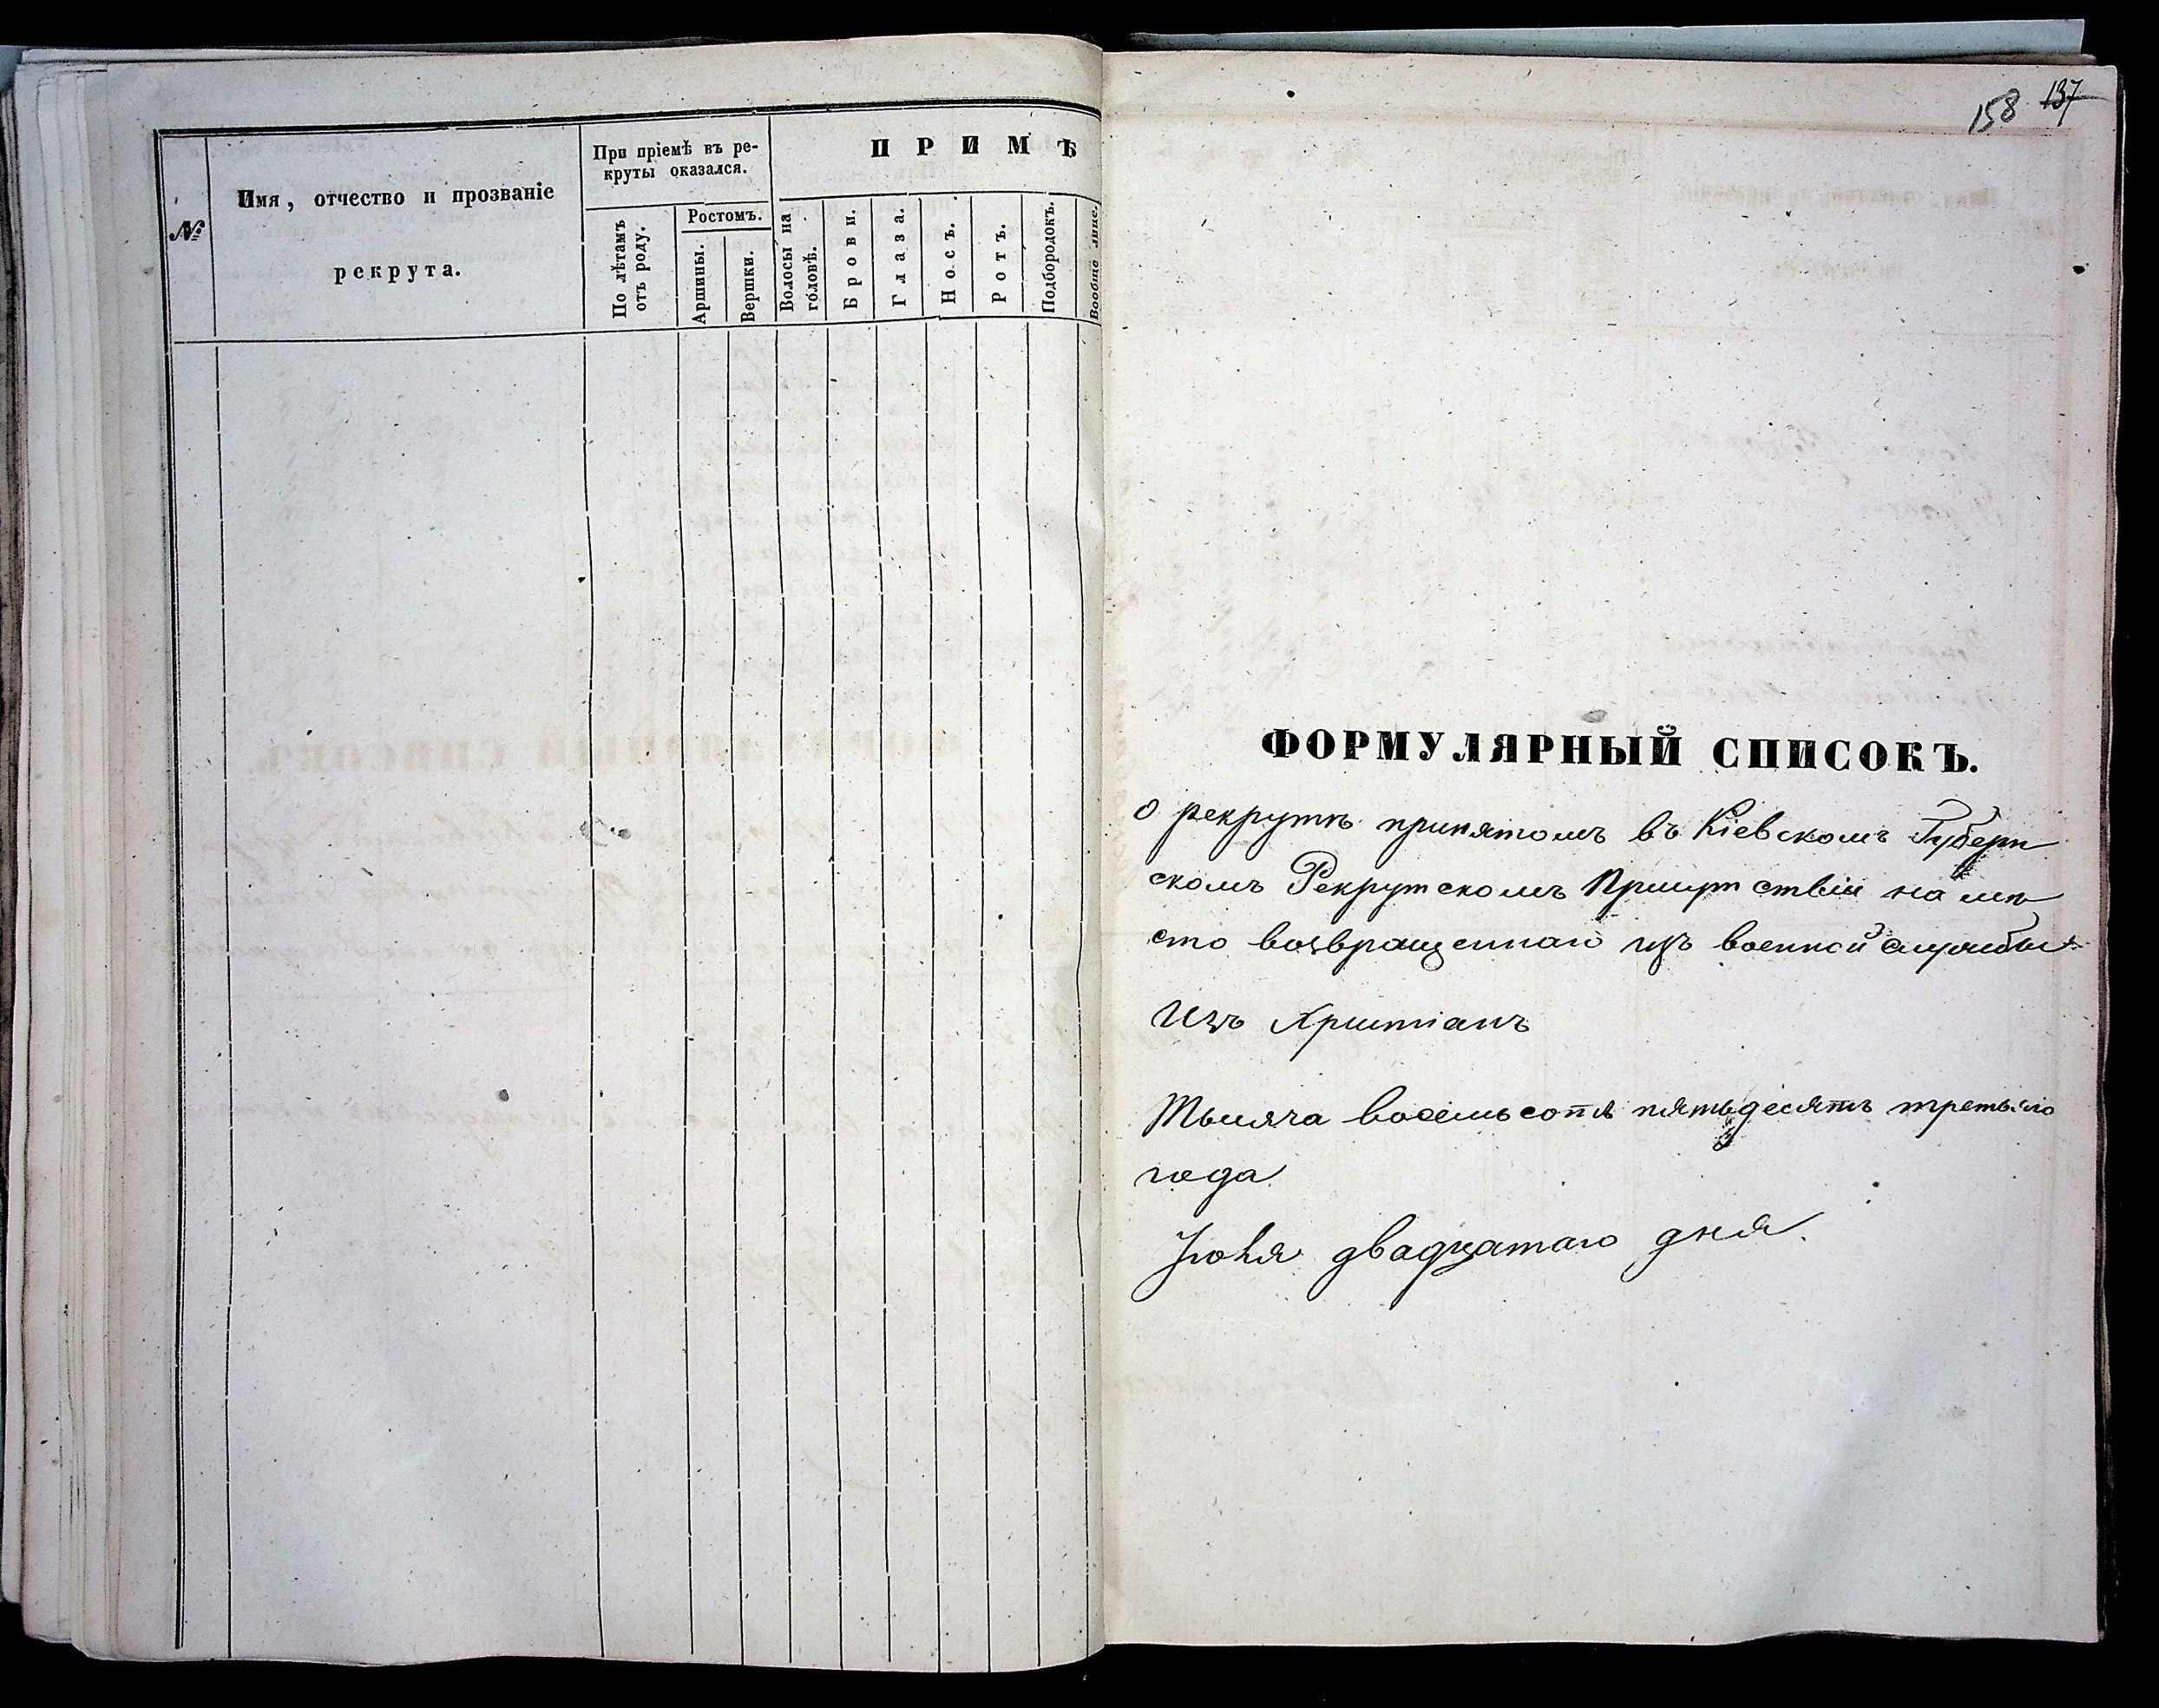 №
Имя, отчество и прозваніе
рекрута.
При пріемѣ въ ре-
круты оказался.
По лѣтамъ
отъ роду.
Ростомъ.
Аршины.
Вершки.
ПРИМѢ
Волосы на
головѣ.
Брови.
Глаза.
Носъ.
Ротъ.
Подбородокъ.
Вообще лице.
158 137
ФОРМУЛЯРНЫЙ СПИСОКЪ.
о рекрутѣ принятомъ въ Кіевскомъ Губерн
скомъ Рекрутскомъ Присутствіи на мѣ
сто возвращеннаго изъ военной службы
Изъ Христіанъ
Тысяча восемьсотъ пятьдесятъ третьяго
года
Іюня двадцатаго дня.